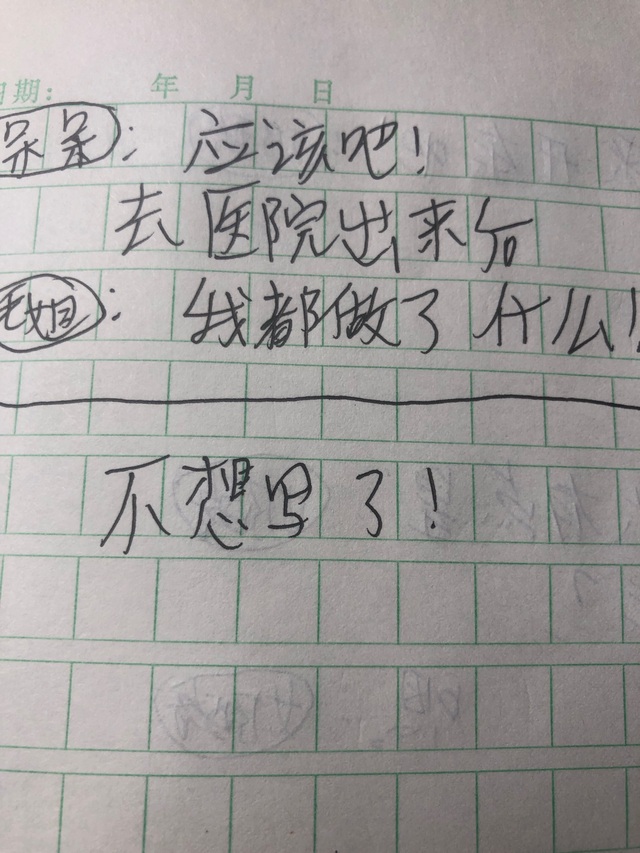 日期： 年 月 日
呆呆：应该吧！
去医院出来后
：我都做了什么！
不想写了！